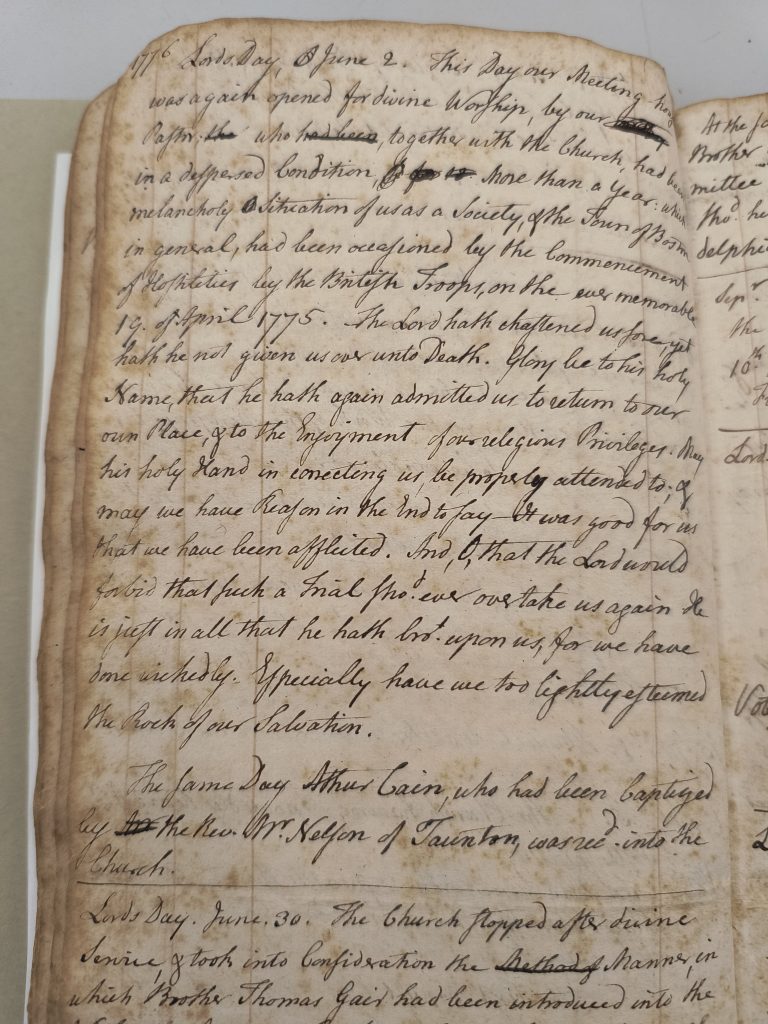 1776 Lords Day, June 2. This Day our Meeting hous
was again opened for divine Worship, by our
Pastor: the who had been, together with the Church, had been
in a disspersed Condition, More than a Year: which
melancholy Situation of us as a Society, & the Town of Boston
in general, had been occasioned by the Commencement
of Hostileties by the British Troops, on the ever memorable
19. of April 1775. The Lord hath chastened us sore, yet
hath he not given us over unto Death. Glory be to his holy
Name, that he hath again admitted us to return to our
own Place, & to the Enjoyment of our religious Privileges. May
his holy Hand in correcting us, be properly attended to; &
may we have Reason in the End to say – It was good for us
that we have been afflicted. And, O, that the Lord would
forbid that such a Trial shod. ever overtake us again He
is just in all that he hath brot. upon us, for we have
done wickedly. Especially have we too lightly esteemed
the Rock of our Salvation.
The same Day Athur Cain, who had been baptized
by the Rev. Mr. Nelson of Taunton, was recd. into the
Church.
Lords Day. June. 30. The Church stopped after divine
Service, & took into Consideration the Method of Manner, in
which Brother Thomas Gair had been introduced into the
At the sa
Brother
mittee
shod. he
delphi
Sepr.
the
10th
Lord